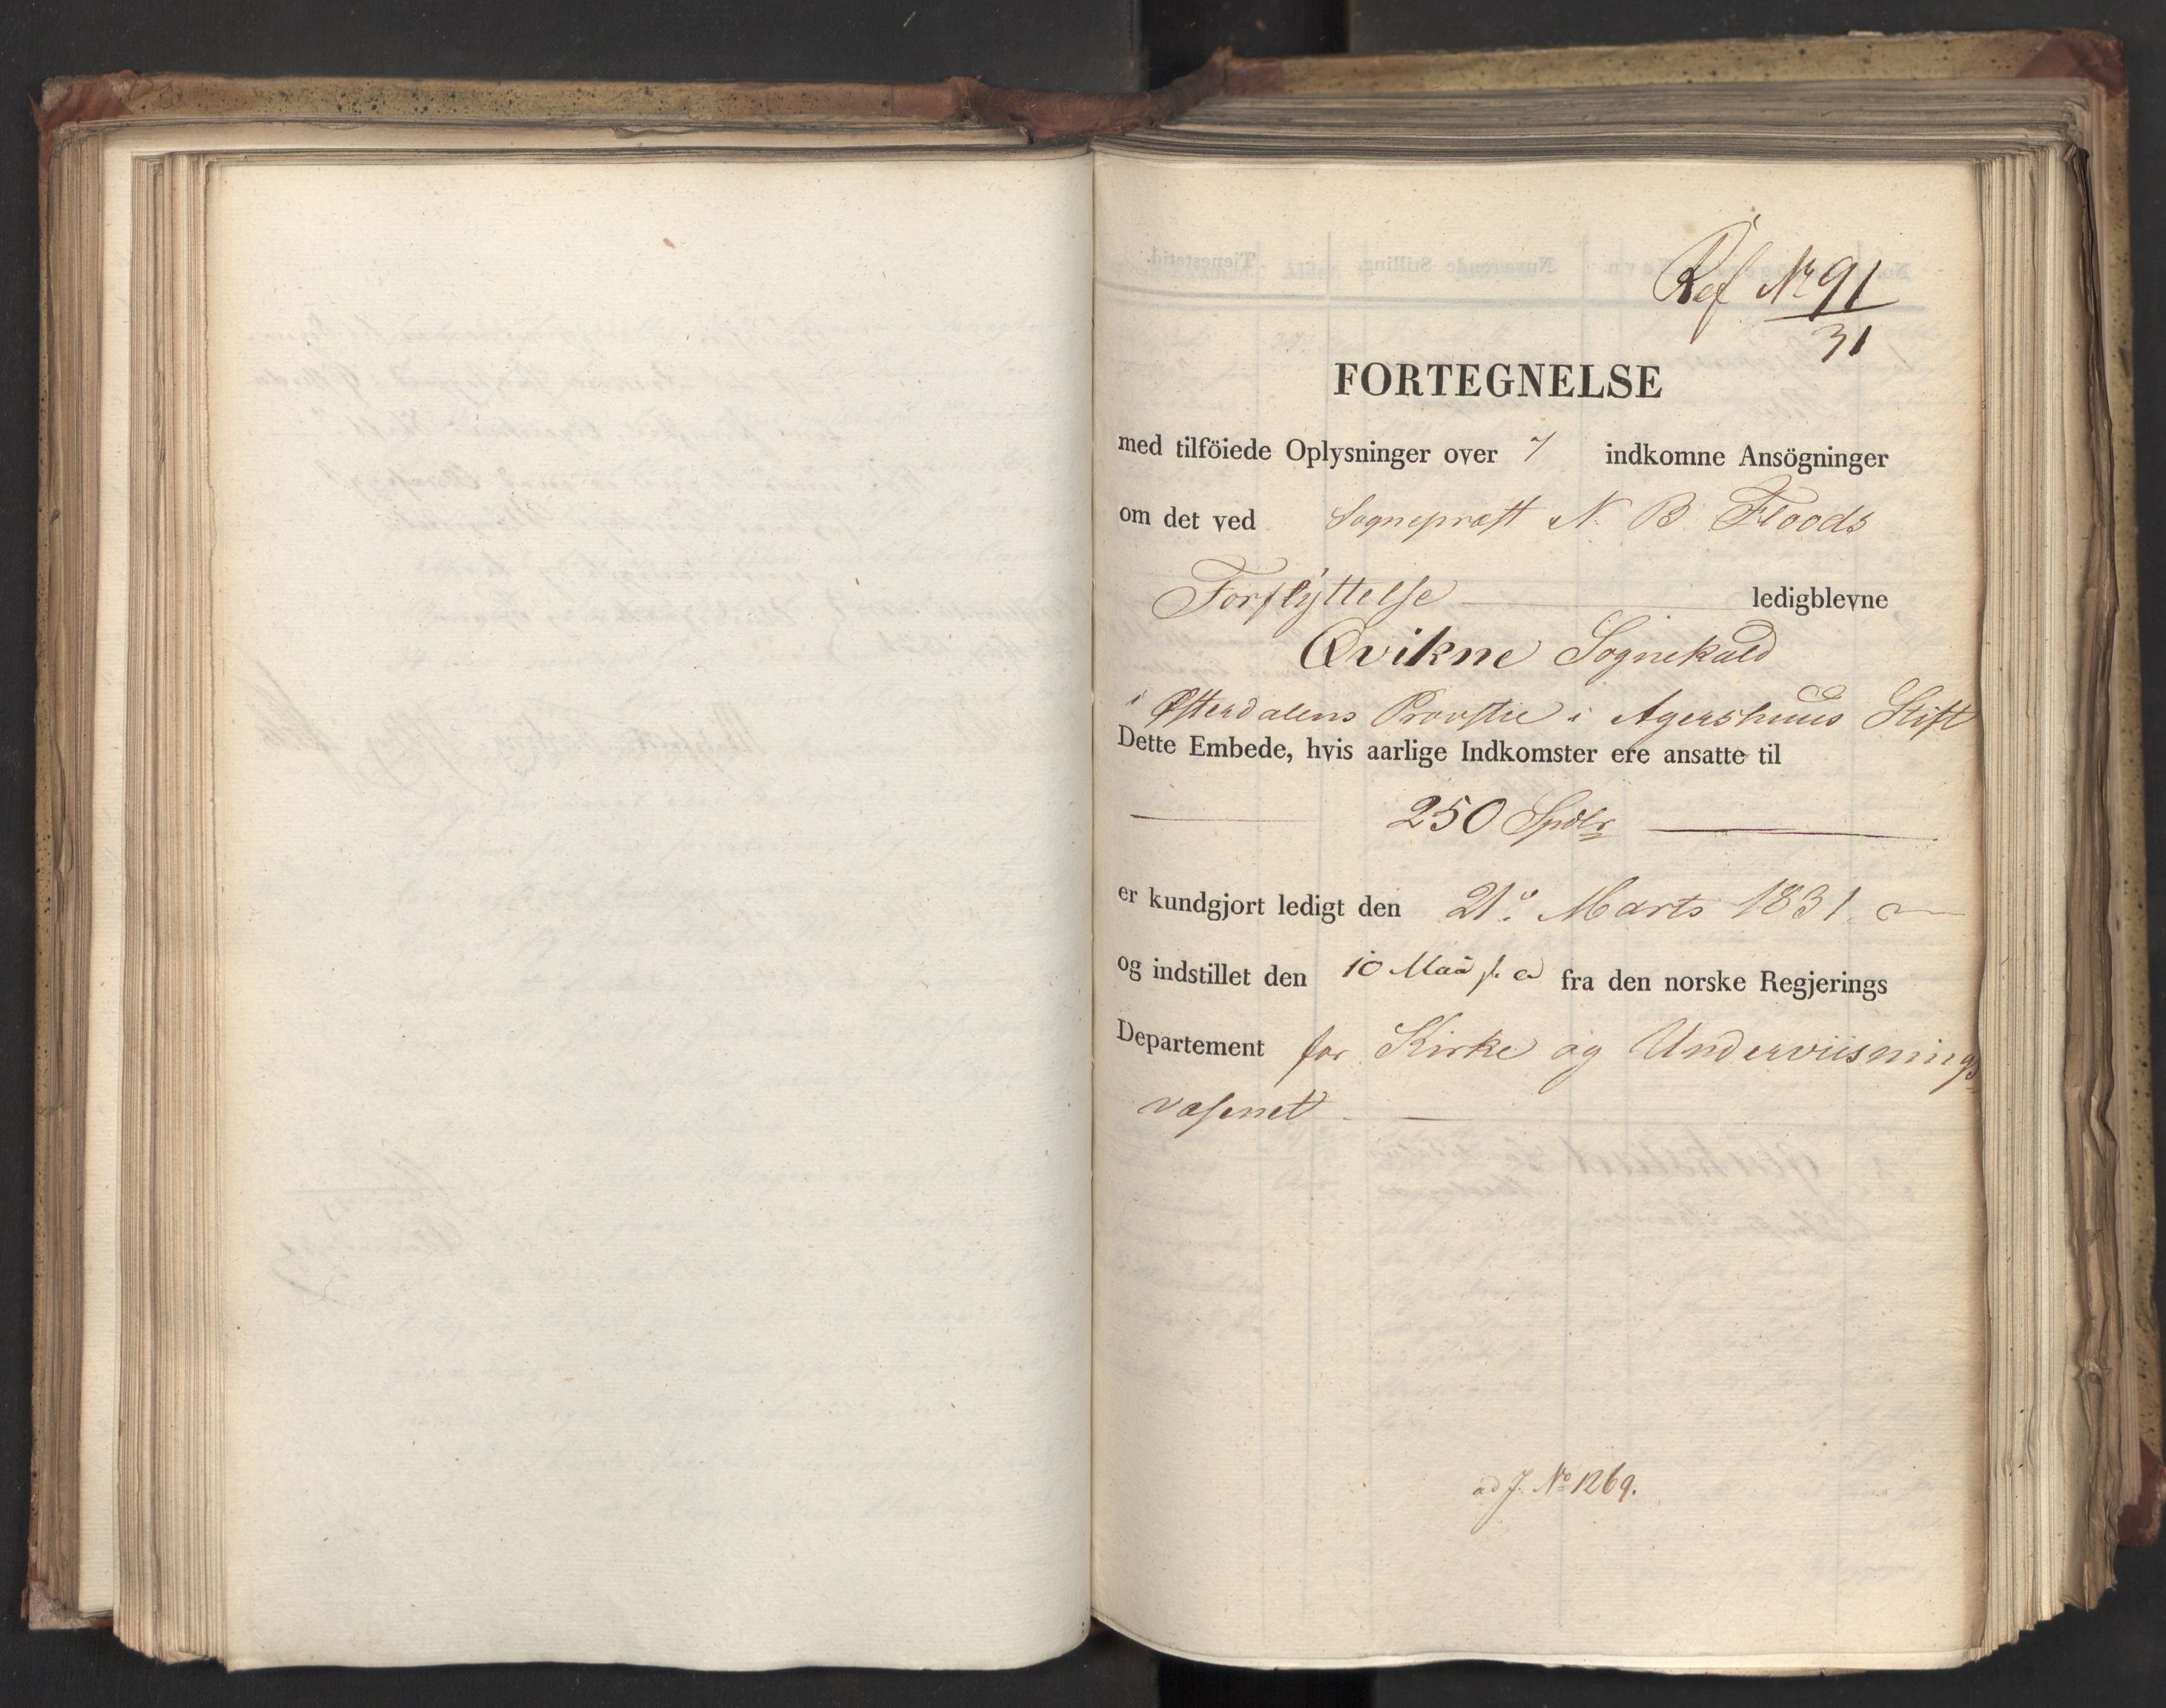 Ref No 91
31
FORTEGNELSE
med tilföiede Oplysninger over 7 indkomne Ansögninger
om det ved Sognepræst N. B. Floods
Forflyttelse ledigblevne
Qvikne Sognekald
i Østerdalens Provstie i Agershuus Stift
Dette Embede, hvis aarlige Indkomster ere ansatte til
250 Spdlr
er kundgjort ledigt den 21. Marts 1831
og indstillet den 10 Maii s. a fra den norske Regjerings
Departement for Kirke og Underviisnings
væsenet
ad J. No 1269.